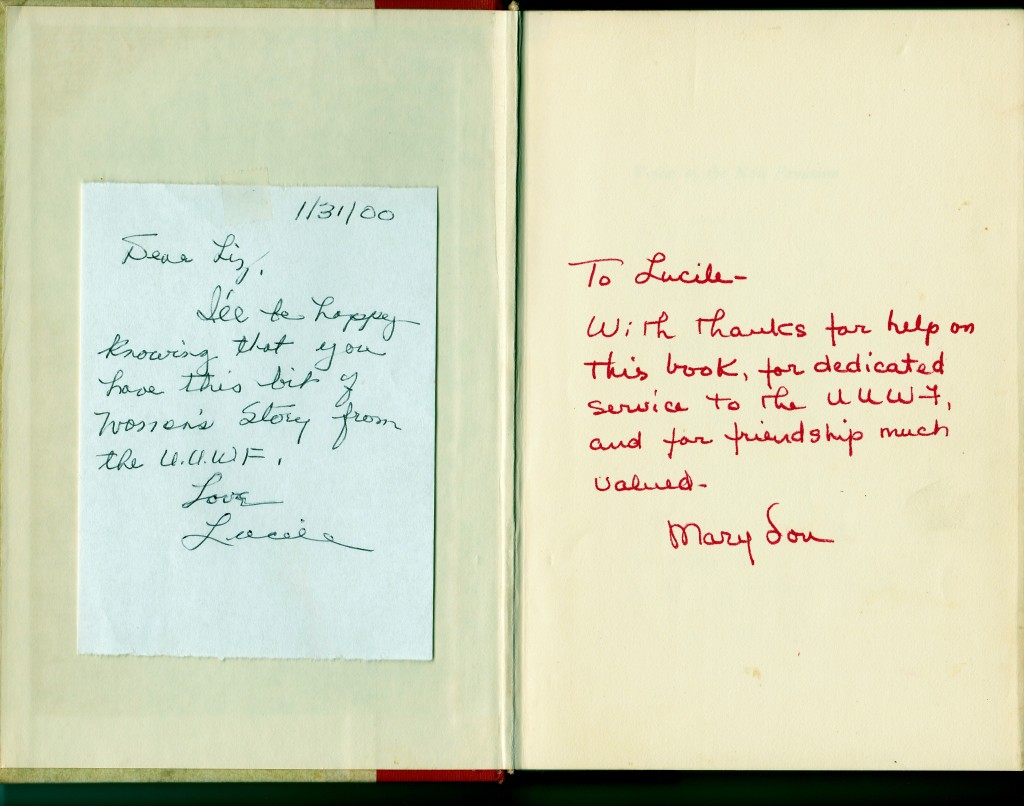 1/31/00
Dear Liz,
I'll be happy
knowing that you
have this bit of
Women's Story from
the U.U.W.F.
Love
Lucile
To Lucile-
With thanks for help on
this book, for dedicated
service to the UUWF,
and for friendship much
valued-
Mary Lou